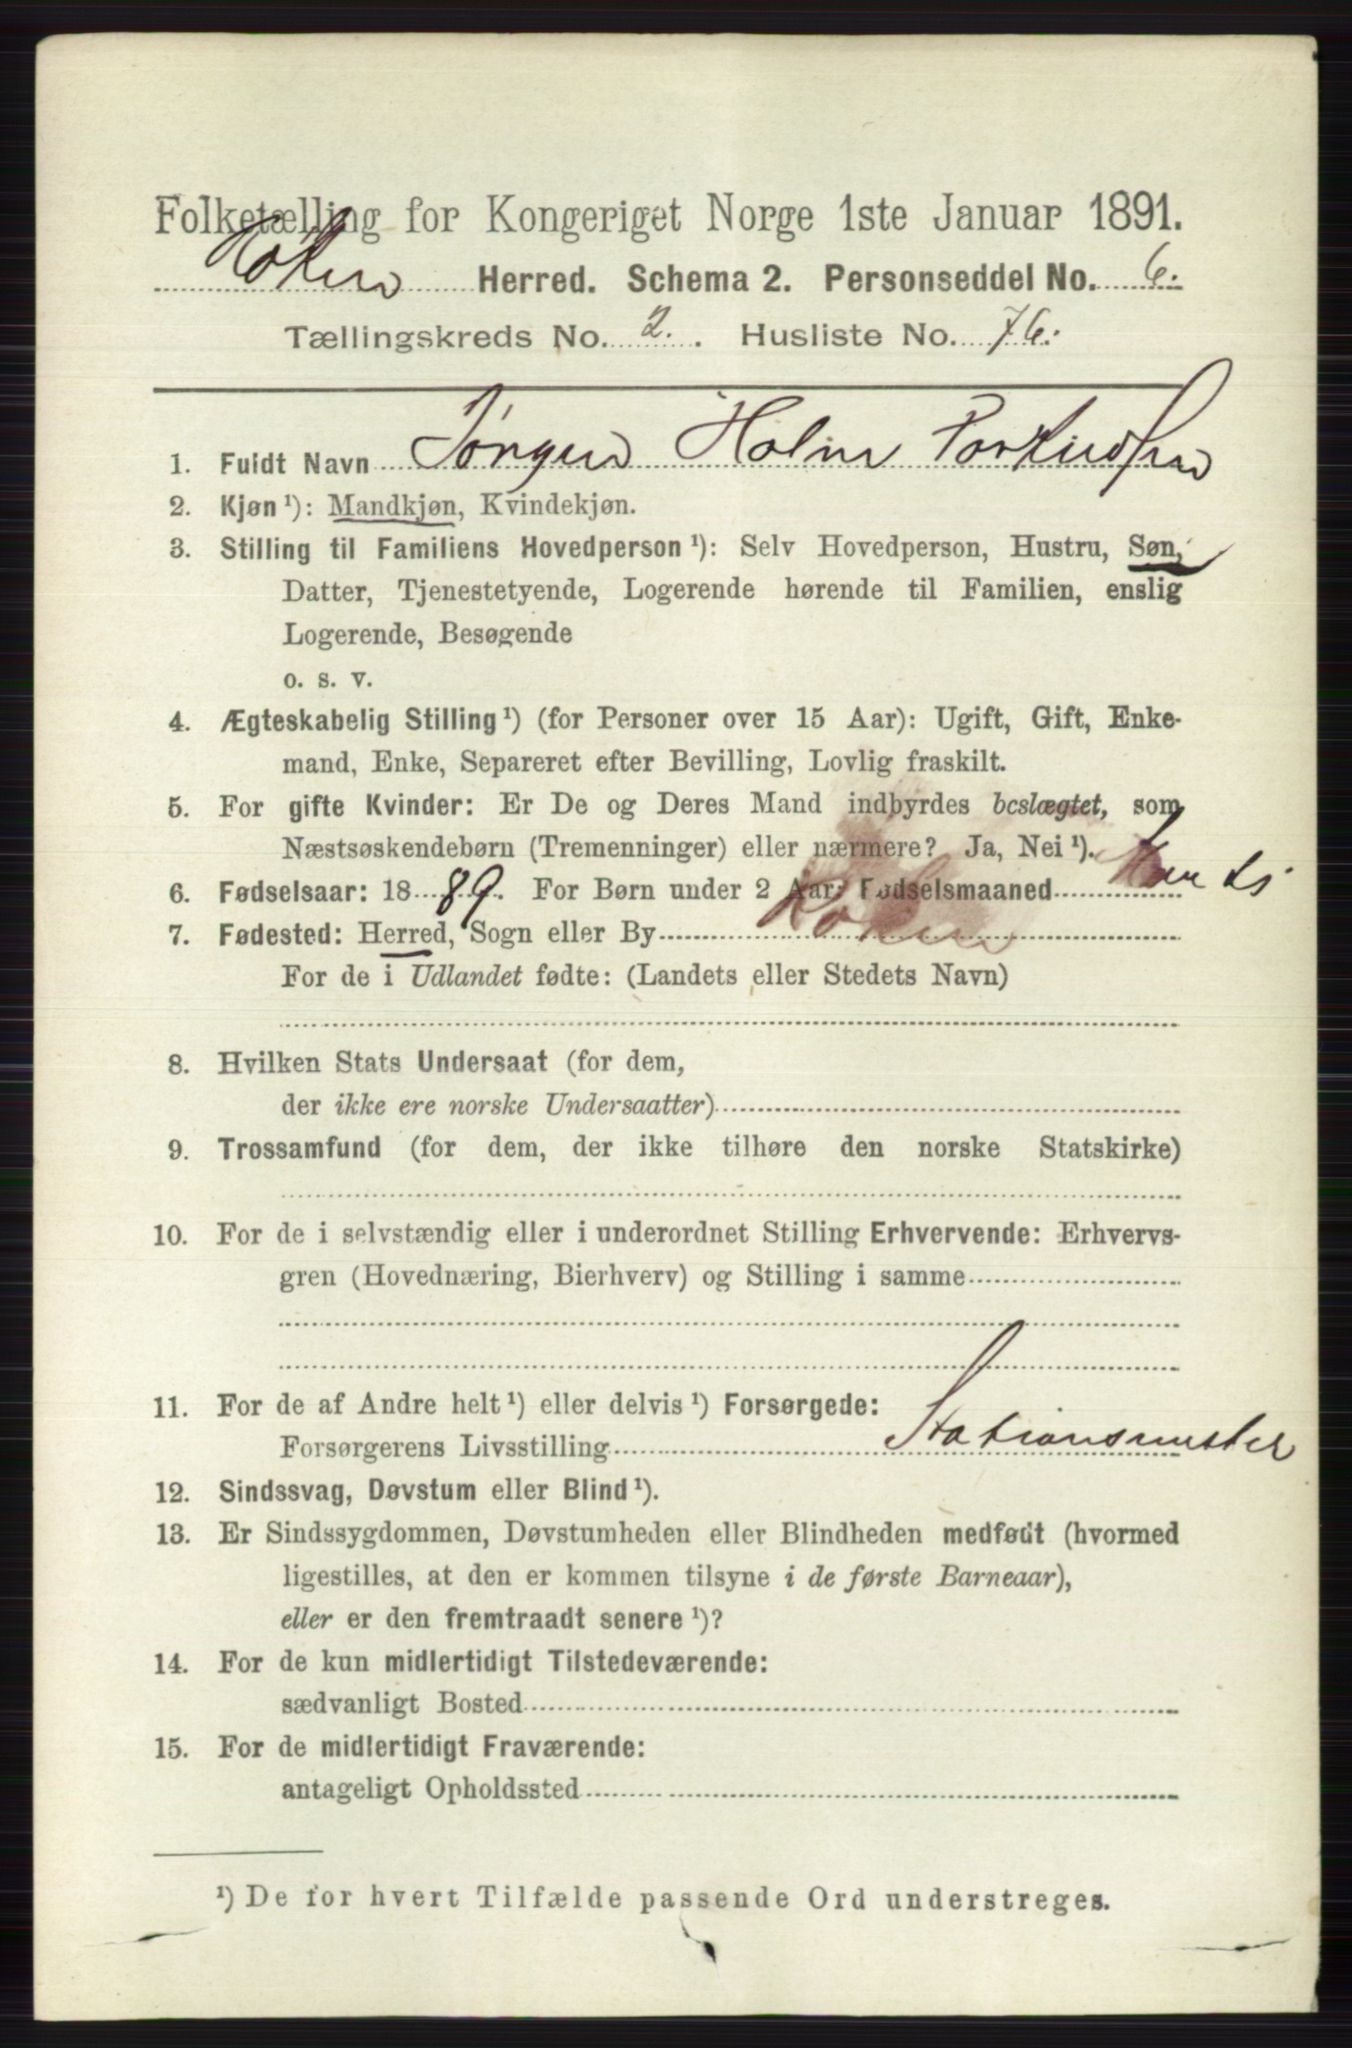 Folketælling for Kongeriget Norge 1ste Januar 1891.
Røken Herred. Schema 2. Personseddel No. 6.
Tællingskreds No. 2. Husliste No. 76.
1. Fuldt Navn Jørgen Holm
2. Kjøn ¹): Mandkjøn, Kvindekjøn.
3. Stilling til Familiens Hovedperson ¹): Selv Hovedperson, Hustru, Søn,
Datter, Tjenestetyende, Logerende hørende til Familien, enslig
Logerende, Besøgende
o. s. v.
4. Ægteskabelig Stilling ¹) (for Personer over 15 Aar): Ugift, Gift, Enke-
mand, Enke, Separeret efter Bevilling, Lovlig fraskilt.
5. For gifte Kvinder: Er De og Deres Mand indbyrdes beslægtet, som
Næstsøskendebørn (Tremenninger) eller nærmere? Ja, Nei ¹).
6. Fødselsaar: 1889. For Børn under 2 Aar: Fødselsmaaned
7. Fødested: Herred, Sogn eller By Røken
For de i Udlandet fødte: (Landets eller Stedets Navn)
8. Hvilken Stats Undersaat (for dem,
der ikke ere norske Undersaatter)
9. Trossamfund (for dem, der ikke tilhøre den norske Statskirke)
10. For de i selvstændig eller i underordnet Stilling Erhvervende: Erhvervs-
gren (Hovednæring, Bierhverv) og Stilling i samme
11. For de af Andre helt ¹) eller delvis ¹) Forsørgede:
Forsørgerens Livsstilling Stationsmester
12. Sindssvag, Døvstum eller Blind ¹).
13. Er Sindssygdommen, Døvstumheden eller Blindheden medfødt (hvormed
ligestilles, at den er kommen tilsyne i de første Barneaar),
eller er den fremtraadt senere ¹)?
14. For de kun midlertidigt Tilstedeværende:
sædvanligt Bosted
15. For de midlertidigt Fraværende:
antageligt Opholdssted
¹) De for hvert Tilfælde passende Ord understreges.